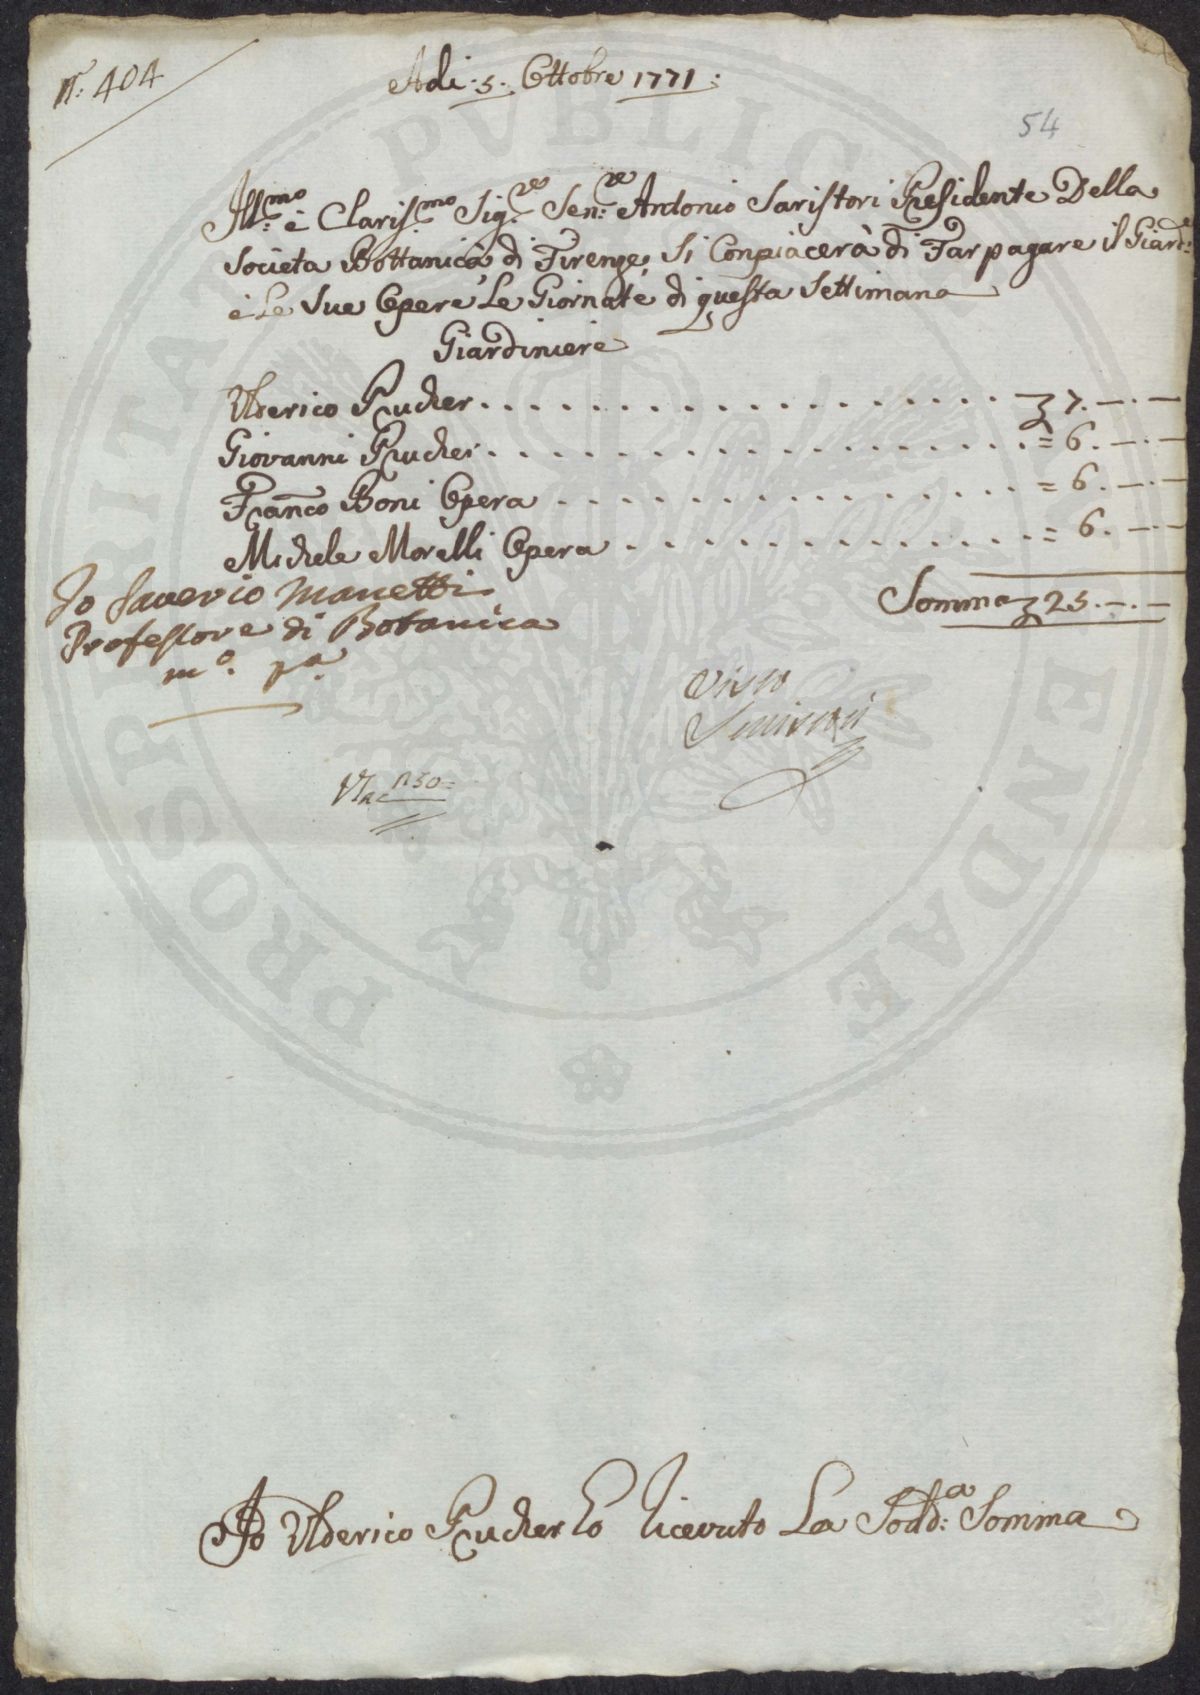 N. 404
Adi. 5. Ottobre 1771:
54
Ill:mo è Claris.mo Sig.re Sen:re Antonio Saristori Presidente Della
Società Bottanica di Firenze, Si Conpiacerà di Far pagare il Giard.e
è Le Sue Opere Le Giornate di questa Settimana
Giardiniere
Ulderico Prucher 7. — . —
Giovanni Prucher = 6. — . —
Franco Boni Opera = 6. — . —
Michele Morelli Opera = 6. — . —
Somma 25. — . —
Io Saverio Manetti
Professore di Botanica
mo. pa.
Visto
Io Ulderico Prucher ho ricevuto La Sodd:a Somma
PROSPERITATI PVBLICAE AVGENDAE